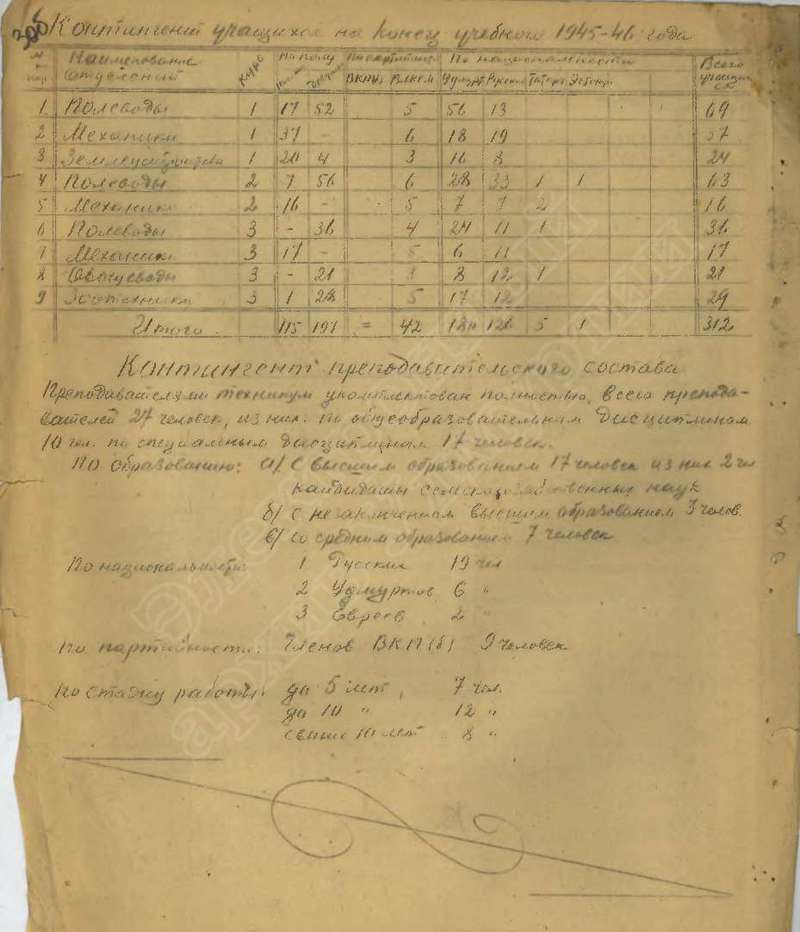 306 Контингент учащихся на конец учебного 1945-46 года
№ Наименование отделений Курс По полу По партийност. По национальности Всего учащих
ВКП(б) ВЛКСМ Удмурт Русских Татар
1 Полеводы 1 17 52 5 56 13 69
2 Механики 1 37 - 6 18 19 37
3 Землеустройства 1 20 4 3 16 8 24
4 Полеводы 2 7 56 6 28 33 1 1 63
5 Механики 2 16 - 5 7 7 2 16
6 Полеводы 3 - 36 4 24 11 1 36
7 Механики 3 17 - 5 6 11 17
8 Овощеводы 3 - 21 3 8 12 1 21
9 Зоотехники 3 1 28 5 17 12 29
Итого 115 197 = 42 180 126 5 1 312
Контингент преподавительского состава
Преподавателями техникум укомплектован полностью, всего препода-
вателей 27 человек, из них: по общеобразовательным дисциплинам
10 чел. по специальным дисциплинам 17 человек.
По образованию: а/ с высшим образованием 17 человек из них 2 чел
кандидаты сельскохозяйственных наук
б/ с незаконченным высшим образованием 3 челов.
в/ со средним образованием 7 человек
По национальности: 1 Русских 19 чел
2 Удмуртов 6 "
3 Евреев 2 "
По партийности: Членов ВКП(б) 9 человек
По стажу работы: до 5 лет, 7 чел.
до 10 " 12 "
свыше 10 лет 8 "